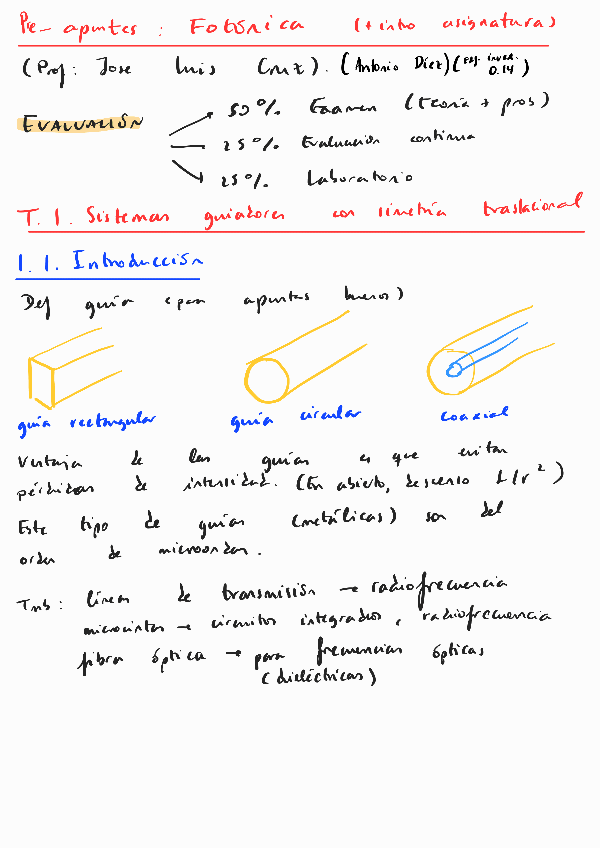 Pre-apuntes: Fotónica (+ intro asignatura)
(Prof: Jose Luis Cruz). (Antonio Díez) (Edf. inver. 0.14)
50% Examen (teoría + pros)
EVALUACIÓN
25% Evaluación continua
25% Laboratorio
T.1. Sistemas guiadores con simetría traslacional
1.1. Introducción
Def guía (para apuntes buenos)
guía rectangular guía circular coaxial
Ventaja de las guías es que evitan
pérdidas de intensidad. (En abierto, descenso 1/r²)
Este tipo de guías (metálicas) son del
orden de microondas.
Tmb: líneas de transmisión → radiofrecuencia
microcintas → circuitos integrados, radiofrecuencia
fibra óptica → para frecuencias ópticas
(dieléctricas)